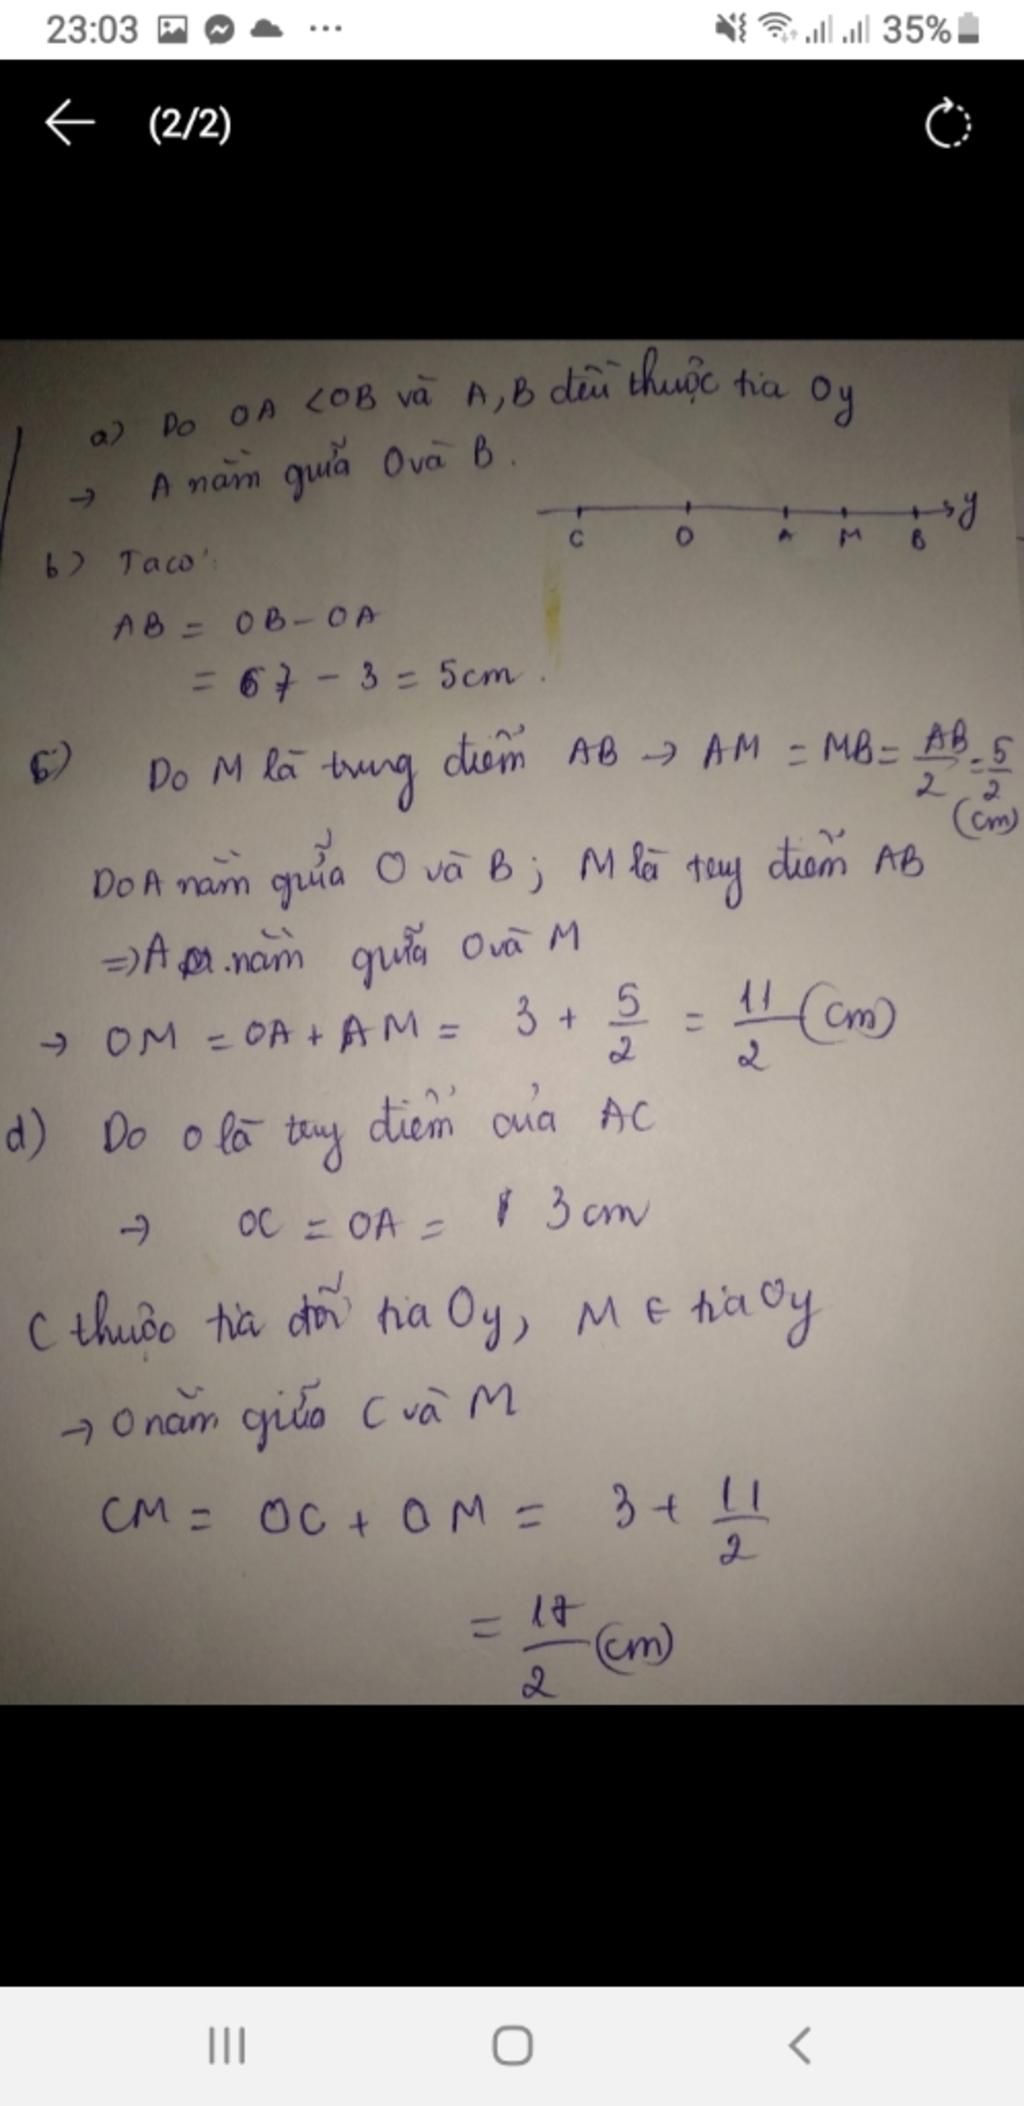 23:03 35%
(2/2)
a) Do OA < OB và A, B đều thuộc tia Oy
→ A nằm giữa O và B.
C O A M B y
b) Ta có:
AB = OB - OA
= 67 - 3 = 5cm.
Do M là trung điểm AB → AM = MB = AB/2 = 5/2 (cm)
Do A nằm giữa O và B; M là tug điểm AB
=> A nằm giữa O và M
→ OM = OA + AM = 3 + 5/2 = 11/2 (cm)
d) Do O là tug điểm của AC
→ OC = OA = 3cm
C thuộc tia đối tia Oy, M ∈ tia Oy
→ O nằm giữa C và M
CM = OC + OM = 3 + 11/2
= 17/2 (cm)